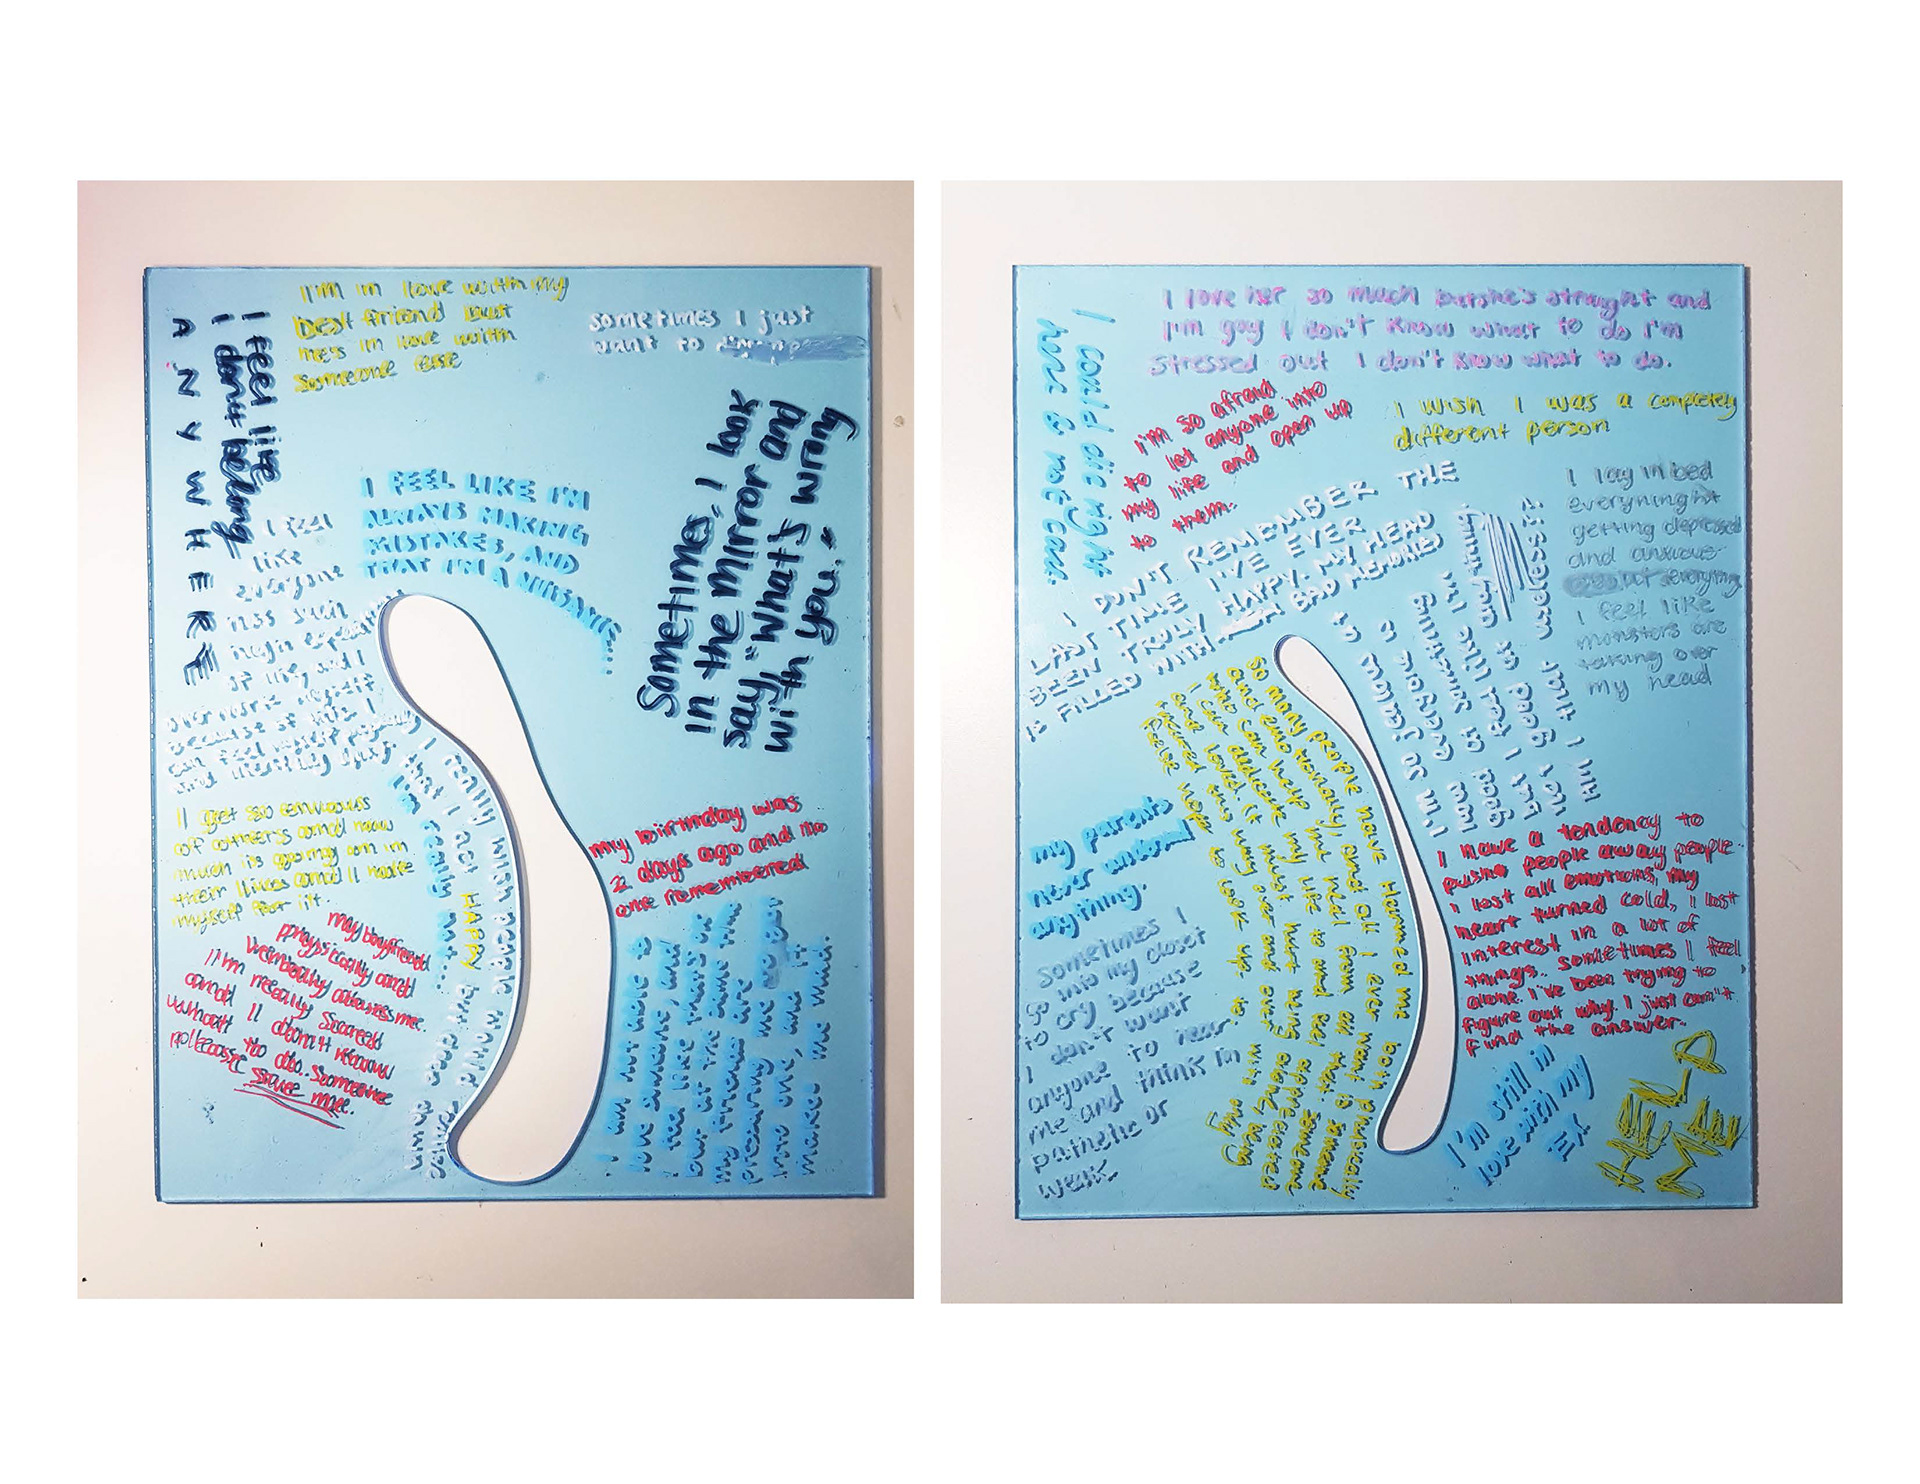 I feel like
i dont belong
ANYWHERE
I'm in love with my
best friend but
hes in love with
someone else
sometimes I just
want to
I FEEL LIKE I'M
ALWAYS MAKING
MISTAKES, AND
THAT I'M A NUISANCE...
Sometimes, I look
in the mirror and
say, "What's wrong
with you."
I feel
like
everyone
has such
high
of life, and I
over work myself
because of this I
can feel myself
and mentally dying.
I get so envious
of others and how
much is going on in
their lives and I hate
myself for it.
my boyfriend
physically and
verbally abuses me.
I'm really scared
and I don't know
what to do. Someone
please save me.
I really wish people would
that I act HAPPY but deep down
I'm really not...
my birthday was
2 days ago and no
one remembered
I am not able to
love someone, and
I feel like that's ok
but at the same time
my friends are
pressuring me
into one, and it
makes me mad.
I could die right
here & not care.
I love her so much but she's straight and
I'm gay I don't know what to do I'm
stressed out I don't know what to do.
I'm so afraid
to let anyone into
my life and open up
to them.
I wish I was a completely
different person
I DON'T REMEMBER THE
LAST TIME I'VE EVER
BEEN TRULY HAPPY. MY HEAD
IS FILLED WITH BAD MEMORIES
I lay in bed
everynight
getting depressed
and anxious
everything
I feel like
monsters are
taking over
my head
I'm so jealous
everyone
is something
good
but I feel like I'm
not good at anything.
Am I that useless!?
So many people have harmed me both physically
and emotionally, and all I ever want is someone
who can help me heal from all that, someone
I can dedicate my life to and feel appreciated
and loved. It must hurt being alone, being
this way over and over with only
false hope to look up to.
my parents
never understand
anything.
Sometimes I
go into my closet
to cry because
I don't want
anyone to hear
me and think I'm
pathetic or
weak
I have a tendency to
push people away people..
I lost all emotions, my
heart turned cold, I lost
interest in a lot of
things.. Sometimes I feel
alone. I've been trying to
figure out why. I just can't
find the answer..
I'm still in
love with my
EX
HELP
MEEE